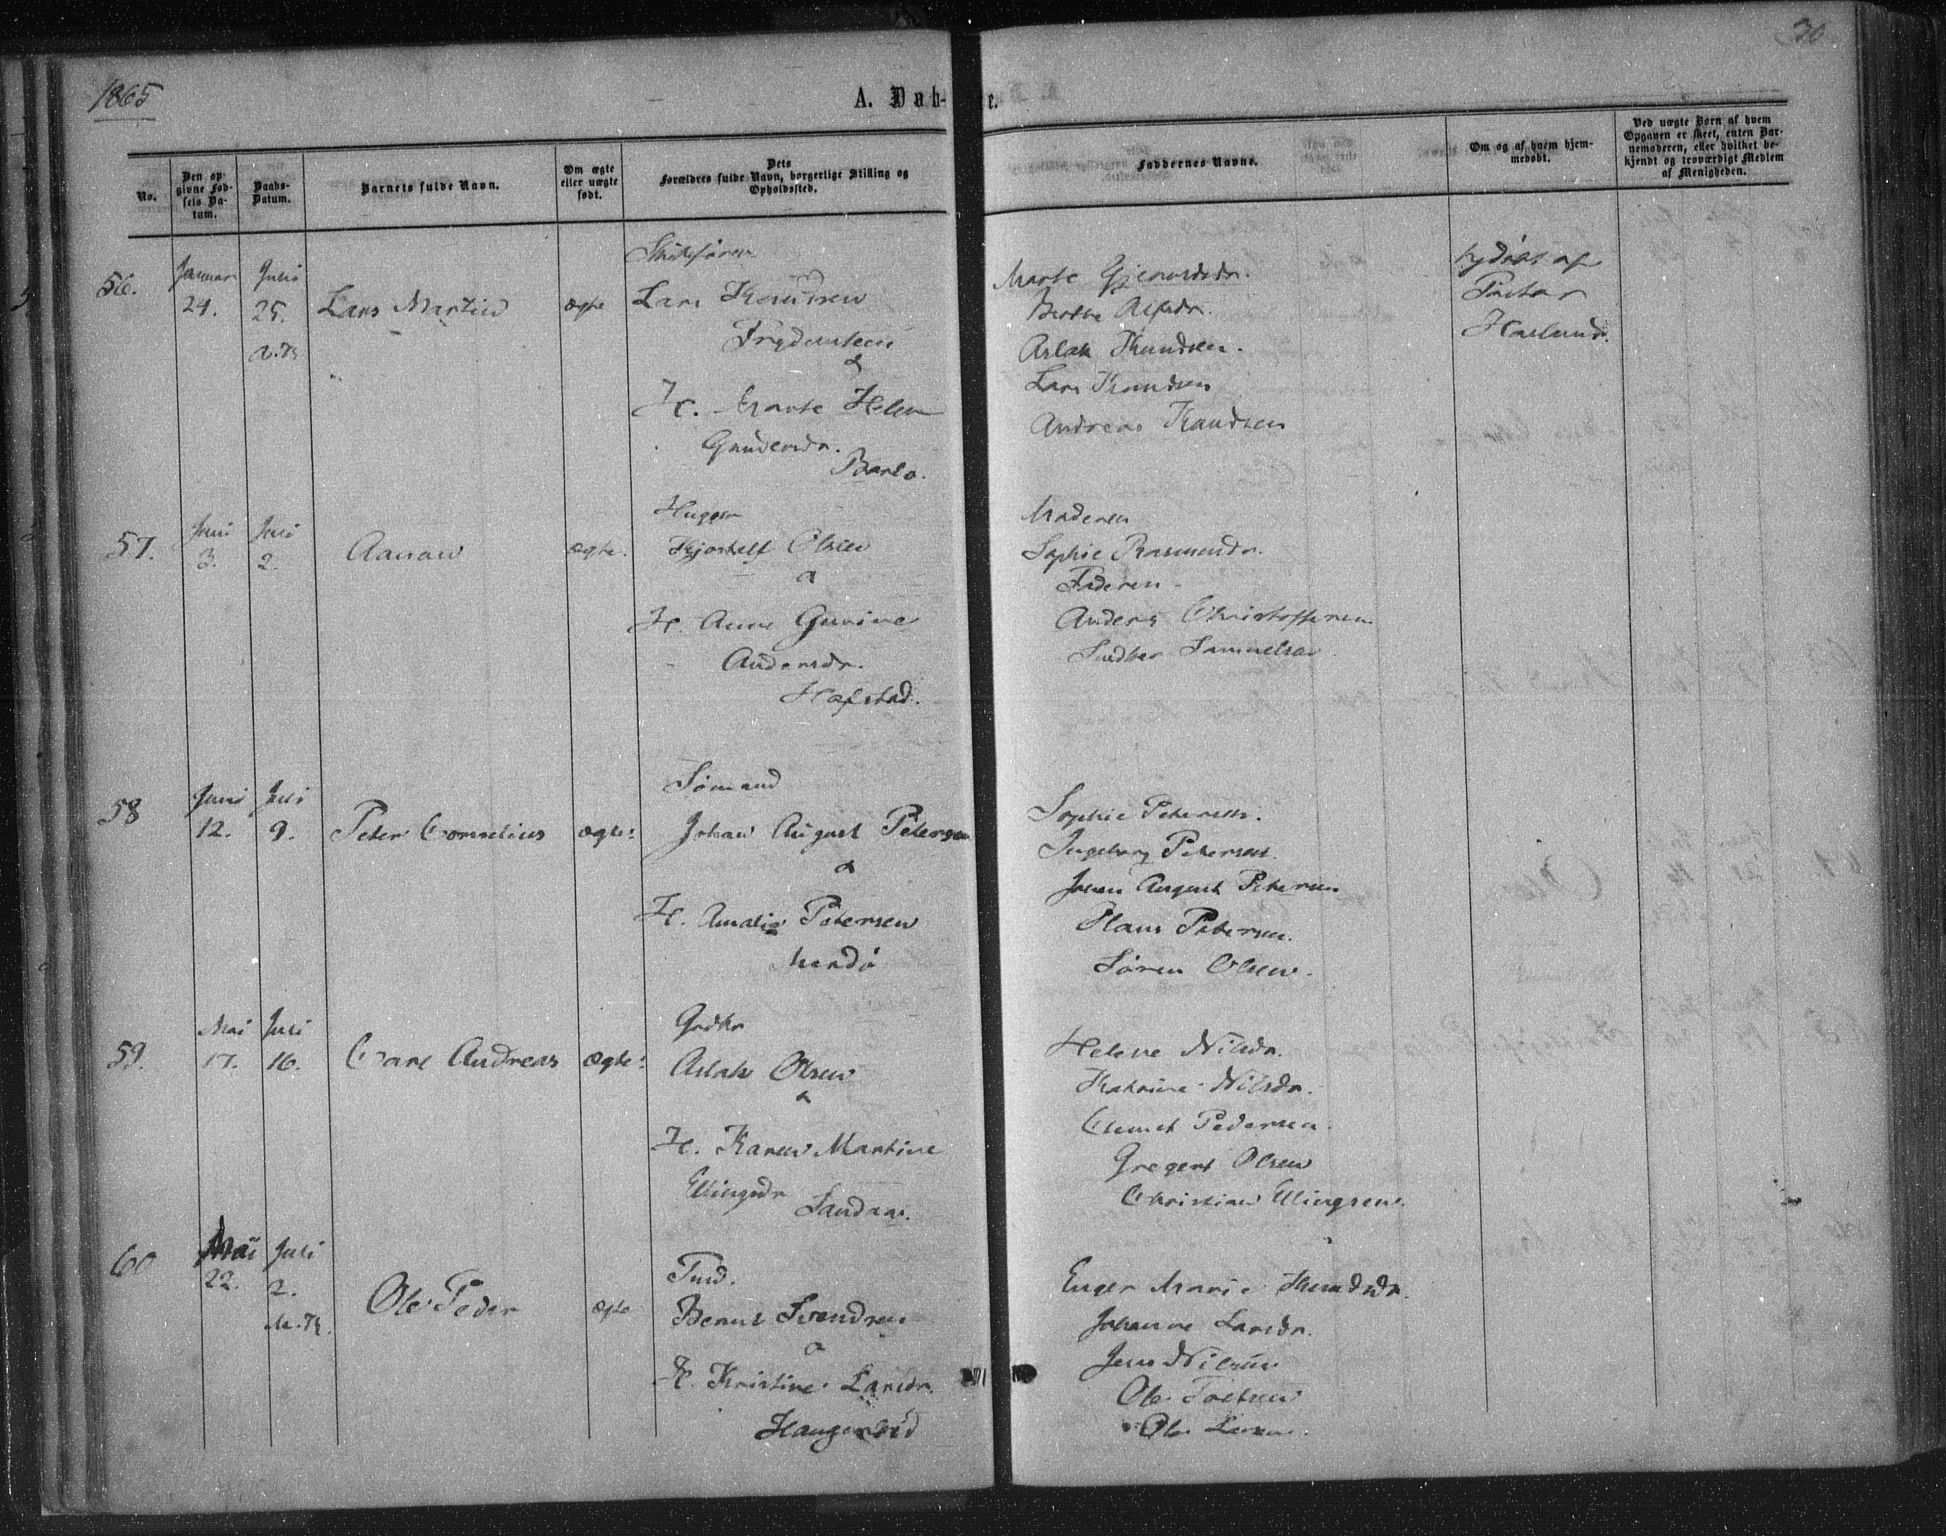 1865
30
A. Daab-
e.
No.
Den op-
givne Fød-
sels Da-
tum.
Daabs-
Datum.
Barnets fulde Navn.
Om ægte
eller uægte
født.
Dets
Forældres fulde Navn, borgerlige Stilling og
Opholdssted.
Faddernes Navne.
Om og af hvem hjem-
medøbt.
Ved uægte Børn af hvem
Opgaven er skeet, enten Bar-
nemoderen, eller hvilket be-
kjendt og troværdigt Medlem
af Menigheden.
56.
Januar
24.
Juni
25.
Lars Martin
ægte
Lars Knudsen
&
H. Marte Helen
Gundersdr.
Marte
Berthe
Aslak Knudsen.
Lars Knudsen
Andreas Knudsen
hjdøbt af
Pastor
57.
Juni
3.
Juli
2.
Aanon
ægte.
Olsen
&
H. Anne Gurine
Andersdr.
Hafstad.
Moderen
Sophie Rasmusdr.
Faderen
Anders Christoffersen
Samuelsen
58
Juni
12.
Juli
9.
Peter Cornelius
ægte:
Sømand
Johan August Petersen
&
H. Amalie Petersen
Sophie Petersen.
Ingeborg Petersen
Johan August Petersen
Claus Petersen.
Søren Olsen.
59.
Mai
17.
Juli
16.
Carl Andreas
ægte:
Grdbr
Aslak Olsen
&
H. Karen Martine
Ellingsdr
Sandaa.
Helene Nilsdr.
Kathrine Nilsdr.
Pedersen.
Gregers Olsen
Christian Ellingsen.
60
Mai
22.
Juli
2.
Ole Peder
ægte
Bernt Svendsen
&
H. Kristine Larsdr.
Marie Knudsdr.
Johanne Larsdr.
Jens Nilsen
Ole
Ole Larsen.